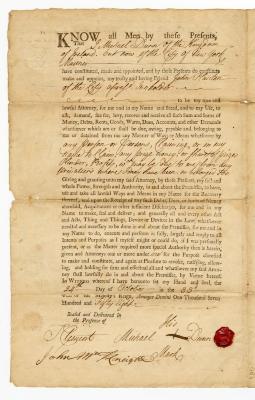 KNOW all Men by these Presents,
That I Michael Dunn of the Kingdom
of Ireland but now of the City of New York
Mariner
have constituted, made and appointed, and by these Presents do constitute
make and appoint, my trusty and loving Friend John
of the City aforesd
to be my true and
lawful Attorney, for me and in my Name and Stead, and to my Use, to
ask, demand, sue for, levy, recover and receive all such Sum and Sums of
Money, Debts, Rents, Goods, Wares, Dues, Accounts, and other Demands
whatsoever which are or shall be due, owing, payable and belonging to
me or detained from me any Manner of Ways or Means whatsoever by
any Person or Persons, and in my
Name to Claim any prize money or Shares of prizes
that may be due to me from any
privateers
Giving and granting unto my said Attorney, by these Presents, my full and
whole Power, Strength and Authority, in and about the Premises, to have,
use and take all lawful Ways and Means in my Name for the Recovery
thereof; and upon the Receipt of any such Debts, Dues, or Sums of Money
aforesaid, Acquittances or other sufficient Discharges, for me and in my
Name to make, seal and deliver; and generally all and every other Act
and Acts, Thing and Things, Device or Devices in the Law whatsoever
needful and necessary to be done in and about the Premises, for me and in
my Name to do, execute and perform as fully, largely and amply to all
Intents and Purposes as I myself might or could do, if I was personally
present, or as if the Matter required more special Authority than is herein
given and Attorneys one or more under him for the Purpose aforesaid
to make and constitute, and again at Pleasure to revoke, ratifying, allow-
ing, and holding for firm and effectual all and whatsoever my said Attorney
shall lawfully do in and about the Premises, by Virtue hereof.
In Witness whereof I have hereunto set my Hand and Seal, the
24th Day of October in the
of his Majesty's Reign, Annoque Domini One Thousand Seven
Hundred and Fifty eight
Sealed and Delivered in
the Presence of
His
Michael Dunn
Mark
John